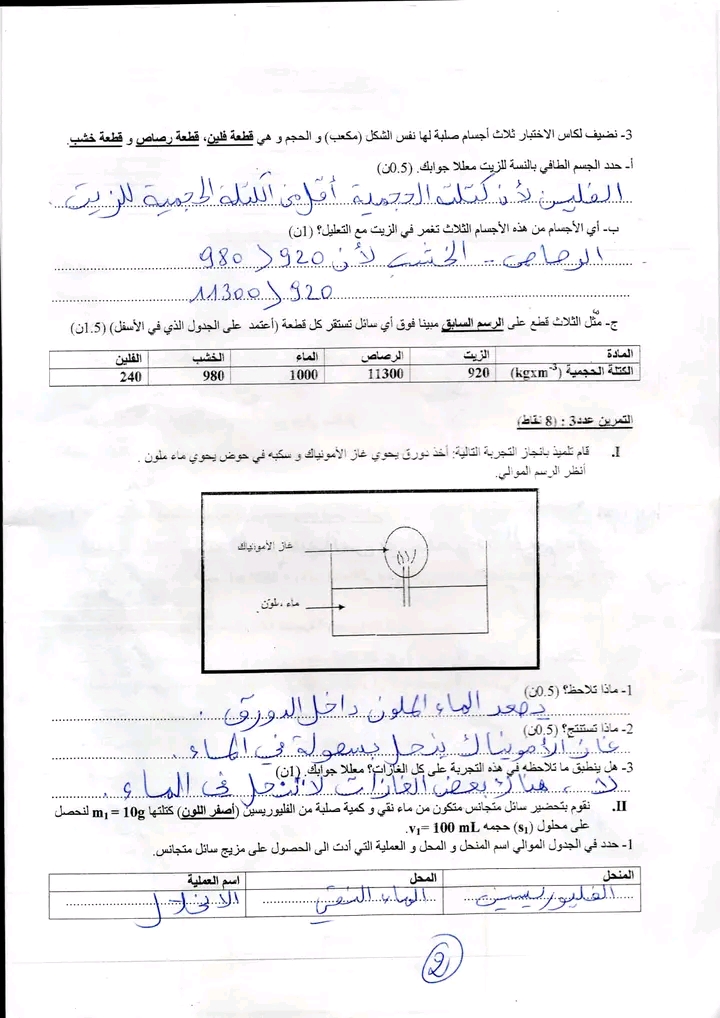 3- نضيف لكاس الاختبار ثلاث أجسام صلبة لها نفس الشكل (مكعب) و الحجم و هي قطعة فلين، قطعة رصاص و قطعة خشب.
أ- حدد الجسم الطافي بالنسة للزيت معللا جوابك. (0.5ن)
الفلين لأن كتلته الحجمية أقل من الكتلة الحجمية للزيت.
ب- أي الأجسام من هذه الأجسام الثلاث تغمر في الزيت مع التعليل؟ (1ن)
الرصاص - الخشب لأن 920 < 980
920 < 11300
ج- مثّل الثلاث قطع على الرسم السابق مبينا فوق أي سائل تستقر كل قطعة (أعتمد على الجدول الذي في الأسفل) (1.5ن)
المادة الزيت الرصاص الماء الخشب الفلين
الكتلة الحجمية (kgxm-3) 920 11300 1000 980 240
التمرين عدد3 : (8 نقاط)
I. قام تلميذ بانجاز التجربة التالية: أخذ دورق يحوي غاز الأمونياك و سكبه في حوض يحوي ماء ملون .
أنظر الرسم الموالي.
غاز الأمونياك
ماء ملون
1- ماذا تلاحظ؟ (0.5ن)
يصعد الماء الملون داخل الدورق .
2- ماذا تستنتج؟ (0.5ن)
غاز الأمونياك ينحل بسهولة في الماء .
3- هل ينطبق ما تلاحظه في هذه التجربة على كل الغازات؟ معللا جوابك. (1ن)
لا ، هناك بعض الغازات لا تنحل في الماء .
II. نقوم بتحضير سائل متجانس متكون من ماء نقي و كمية صلبة من الفليوريسين (أصفر اللون) كتلتها m1 = 10g لنحصل
على محلول (s1) حجمه v1= 100 mL.
1- حدد في الجدول الموالي اسم المنحل و المحل و العملية التي أدت الى الحصول على مزيج سائل متجانس.
المنحل المحل اسم العملية
الفليوريسين الماء النقي الانحلال
2